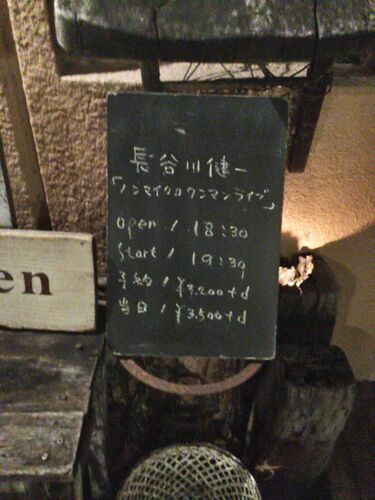 長谷川健一
「ノンマイクロワンマンライブ」
open / 18:30
Start / 19:30
予約 / ¥3,200+d
当日 / ¥3,500+d
en